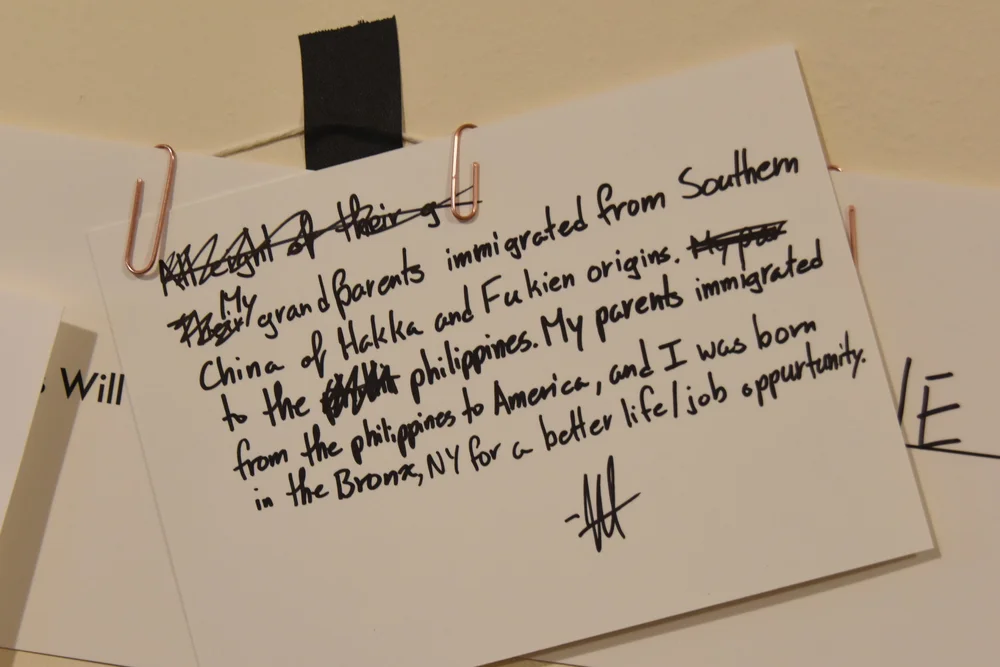 All eight of their g
Their My grandparents immigrated from Southern
China of Hakka and Fukien origins. My par
to the philippines. My parents immigrated
from the philippines to America, and I was born
in the Bronx, NY for a better life/job oppurtunity.
Will
/E